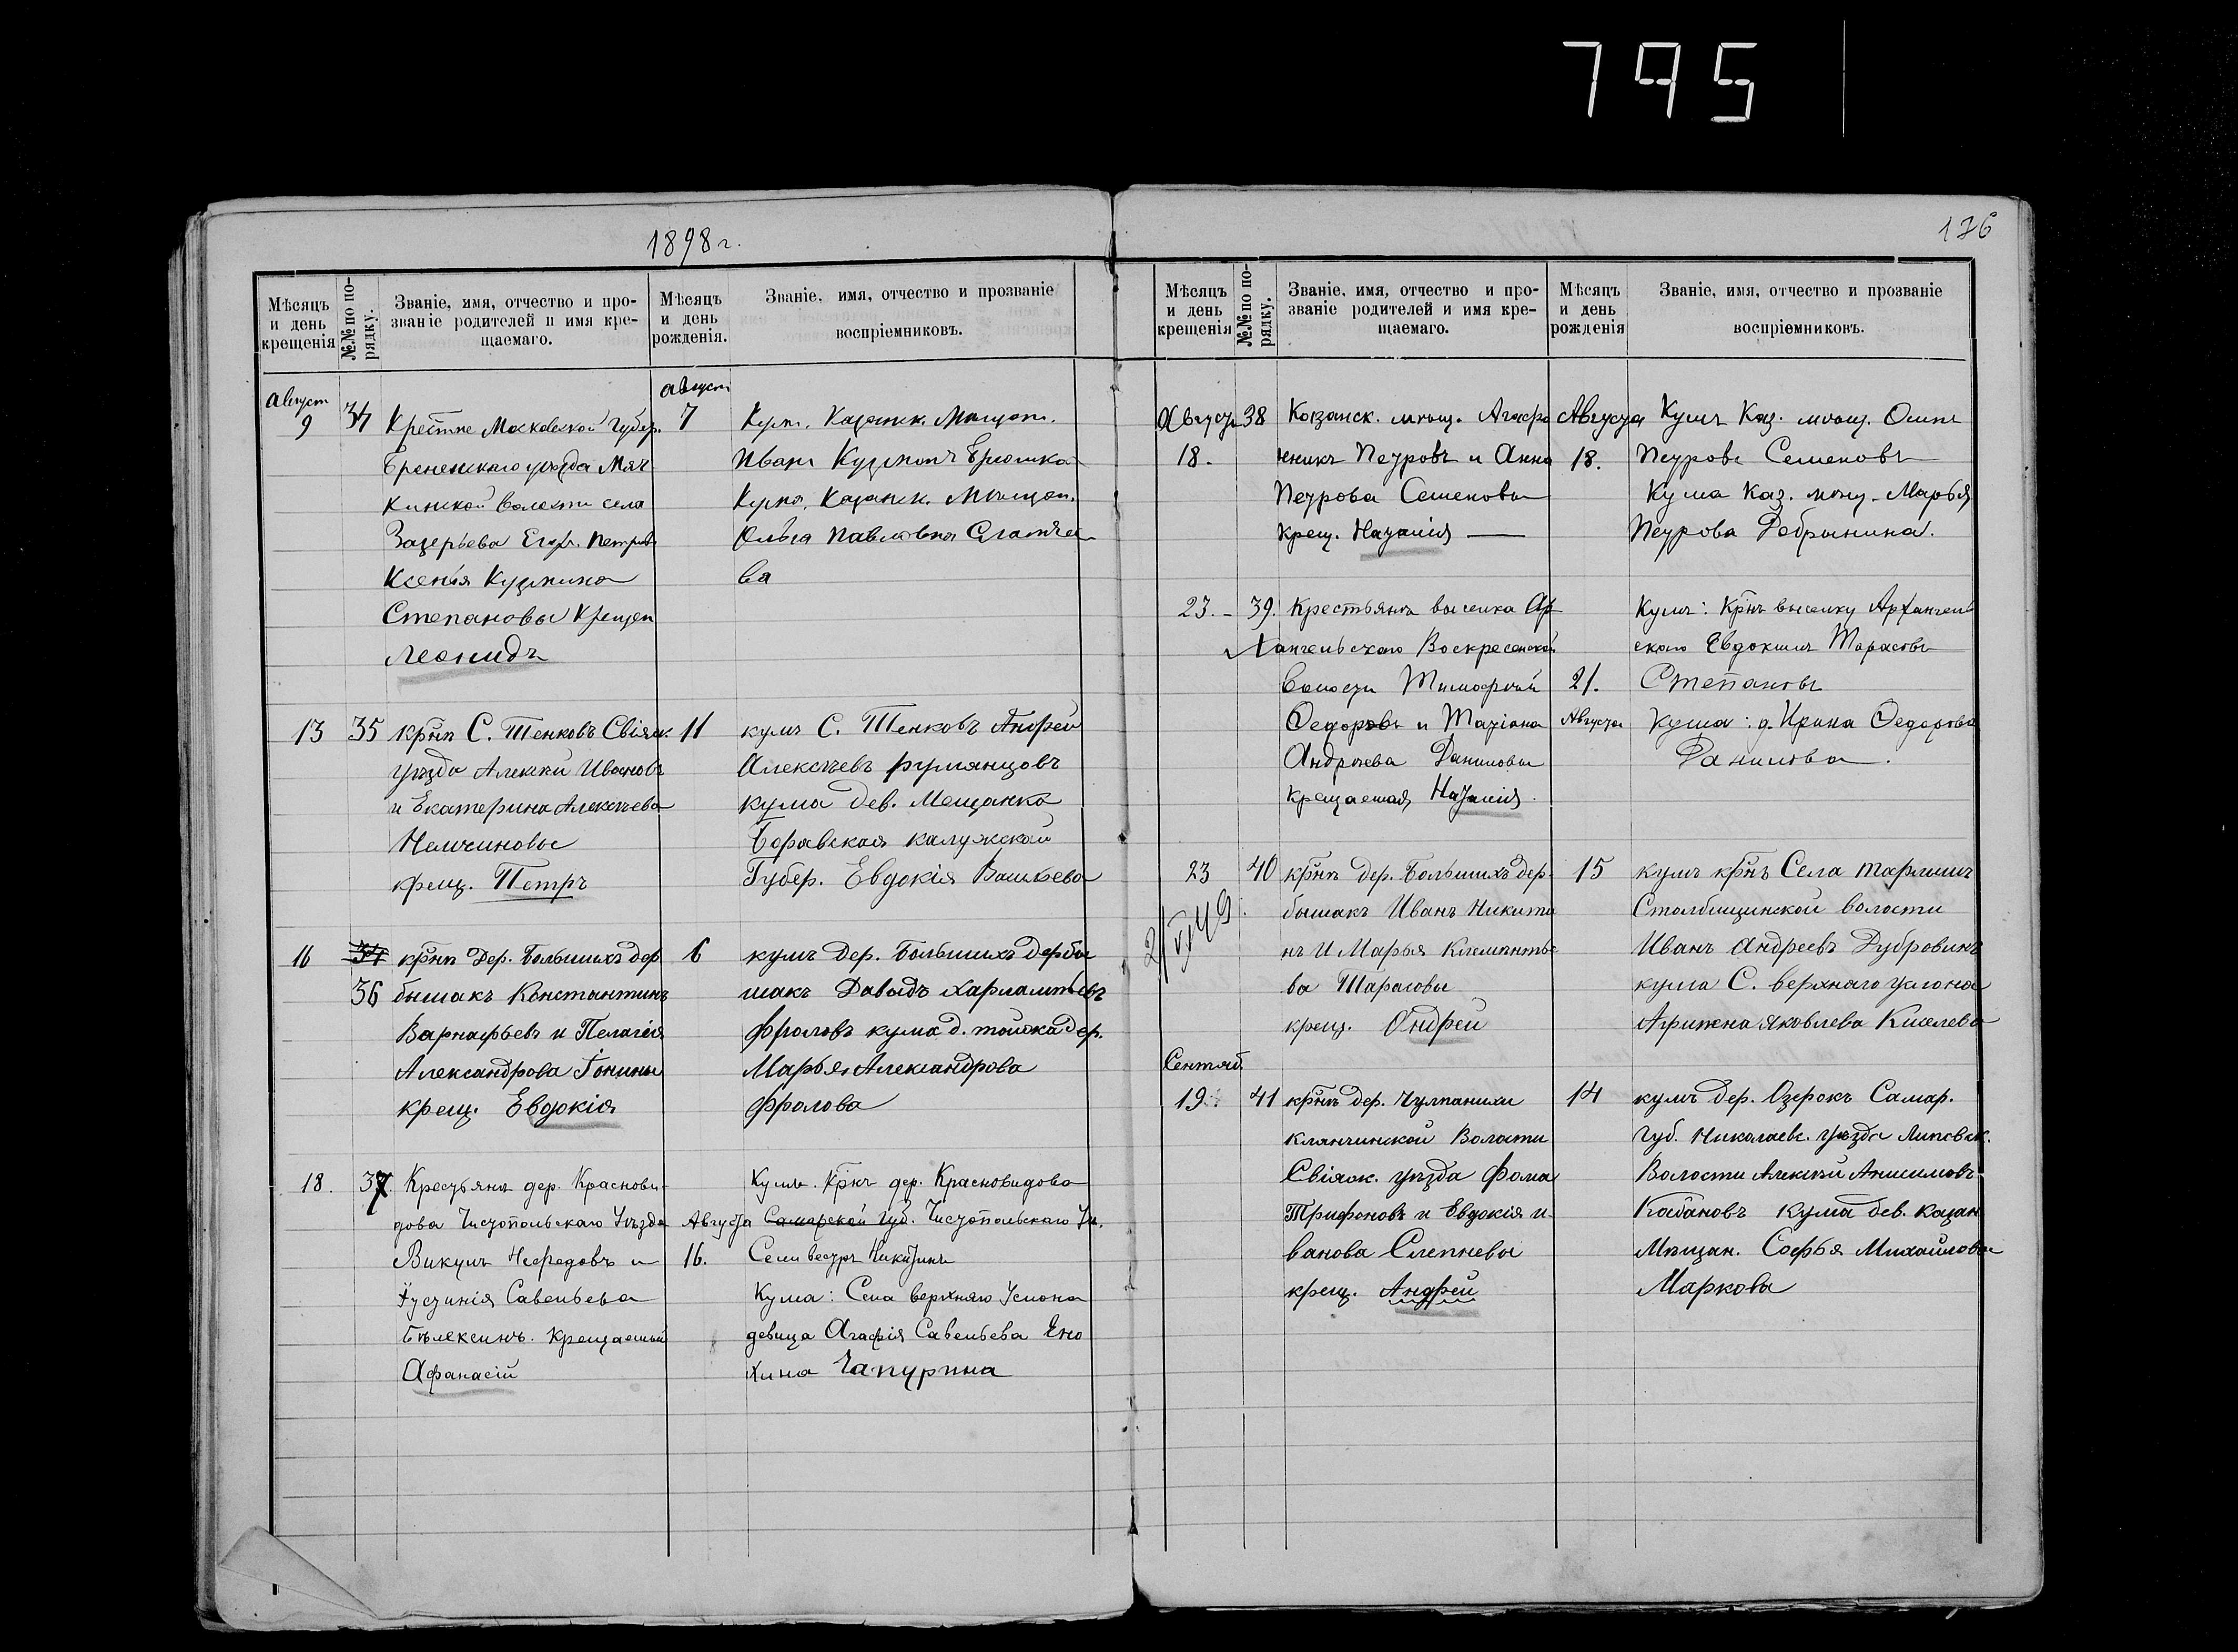 795
1898 г.
176
Мѣсяцъ и день крещенія
№№ по порядку.
Званіе, имя, отчество и прозваніе родителей и имя крещаемаго.
Мѣсяцъ и день рожденія.
Званіе, имя, отчество и прозваніе воспріемниковъ.
август
9
34
Крестне Московской губер.
уѣзда
волости села
Егор. Петров
Ксенія Кузмина
Степановы крещен
Леонидъ
август
7
Кумъ. Казанск. Мѣщан.
Иванъ Кузмичъ
Кума. Казанск. Мѣщан.
Ольга Павловна
ва
13
35
крѣнъ С. Тенковъ Свіяж.
уѣзда Алексѣй Ивановъ
и Екатерина Алексѣева
Немчиновы
крещ. Петръ
11
кумъ С. Тенковъ Андрей
Алексѣевъ румянцовъ
кума дев. Мещанка
Боравская калужской
Губер. Евдокія Васильева
16
34
36
крѣнъ Дер. Большихъ дер
бышакъ Константинъ
Варнафьевъ и Пелагія
Александрова Гонины
крещ. Евдокія
6
кумъ дер. Большихъ дербы
шакъ Давыдъ харлампьевъ
фроловъ кума д. тойже дер.
Марья Александрова
фролова
18.
37.
Крестьянъ дер. Краснови-
дова Чистопольскаго Уѣзда
Викулъ Нефедовъ и
Устинія Савельева
Бѣлексинъ. Крещаемый
Афанасій
Августа
16.
Кумъ. крнъ дер. Красновидова
Самарской губ. Чистопольскаго Уѣ.
Селивестръ Никитинъ
Кума: Села верхняго Услона
девица Агафія Савельева Ено
хина Чапурина
Мѣсяцъ и день крещенія
№№ по порядку.
Званіе, имя, отчество и прозваніе родителей и имя крещаемаго.
Мѣсяцъ и день рожденія
Званіе, имя, отчество и прозваніе воспріемниковъ.
Августа
18.
38
Казанск. мѣщ. Агафо
никъ Петровъ и Анна
Петрова Семеновы
крещ. Наталія
Августа
18.
Кумъ Каз. мѣщ.
Петровъ Семеновъ
Кума Каз. мѣщ. Марья
Петрова Добрынина.
23.
39.
Крестьянъ выселка Ар
хангельскаго Воскресенской
волости Тимофѣй
Федоровъ и Татіана
Андрѣева Даниловы
крещаемая, Наталія.
21.
Августа
Кумъ: Крнъ выселку Архангель
скаго Евдокимъ Тарасовъ
Степановъ
Кума: д. Ирина Федорова
Данилова.
23
40
крѣнъ дер. Большихъ дер-
бышакъ Иванъ Никити
нъ и Марья Клементье
ва Тарасовы
крещ. Андрей
15
кумъ крѣнъ Села тарлыши
Столбищинской волости
Иванъ Андреевъ Дубровинъ
кума С. верхнаго услона
Агрипена яковлева Киселева
Сентяб.
19.
41
крѣнъ дер. Чулпанихи
клянчинской Волости
Свіяж. уѣзда Фома
Трифоновъ и Евдокія и
ванова Слепневы
крещ. Андрей
14
кумъ дер. Озерокъ Самар.
губ. Николаевс. уѣзда Липовск.
Волости Алексѣй Анисимовъ
Кабановъ кума дев. казан
Мѣщан. Софья Михайлова
Маркова